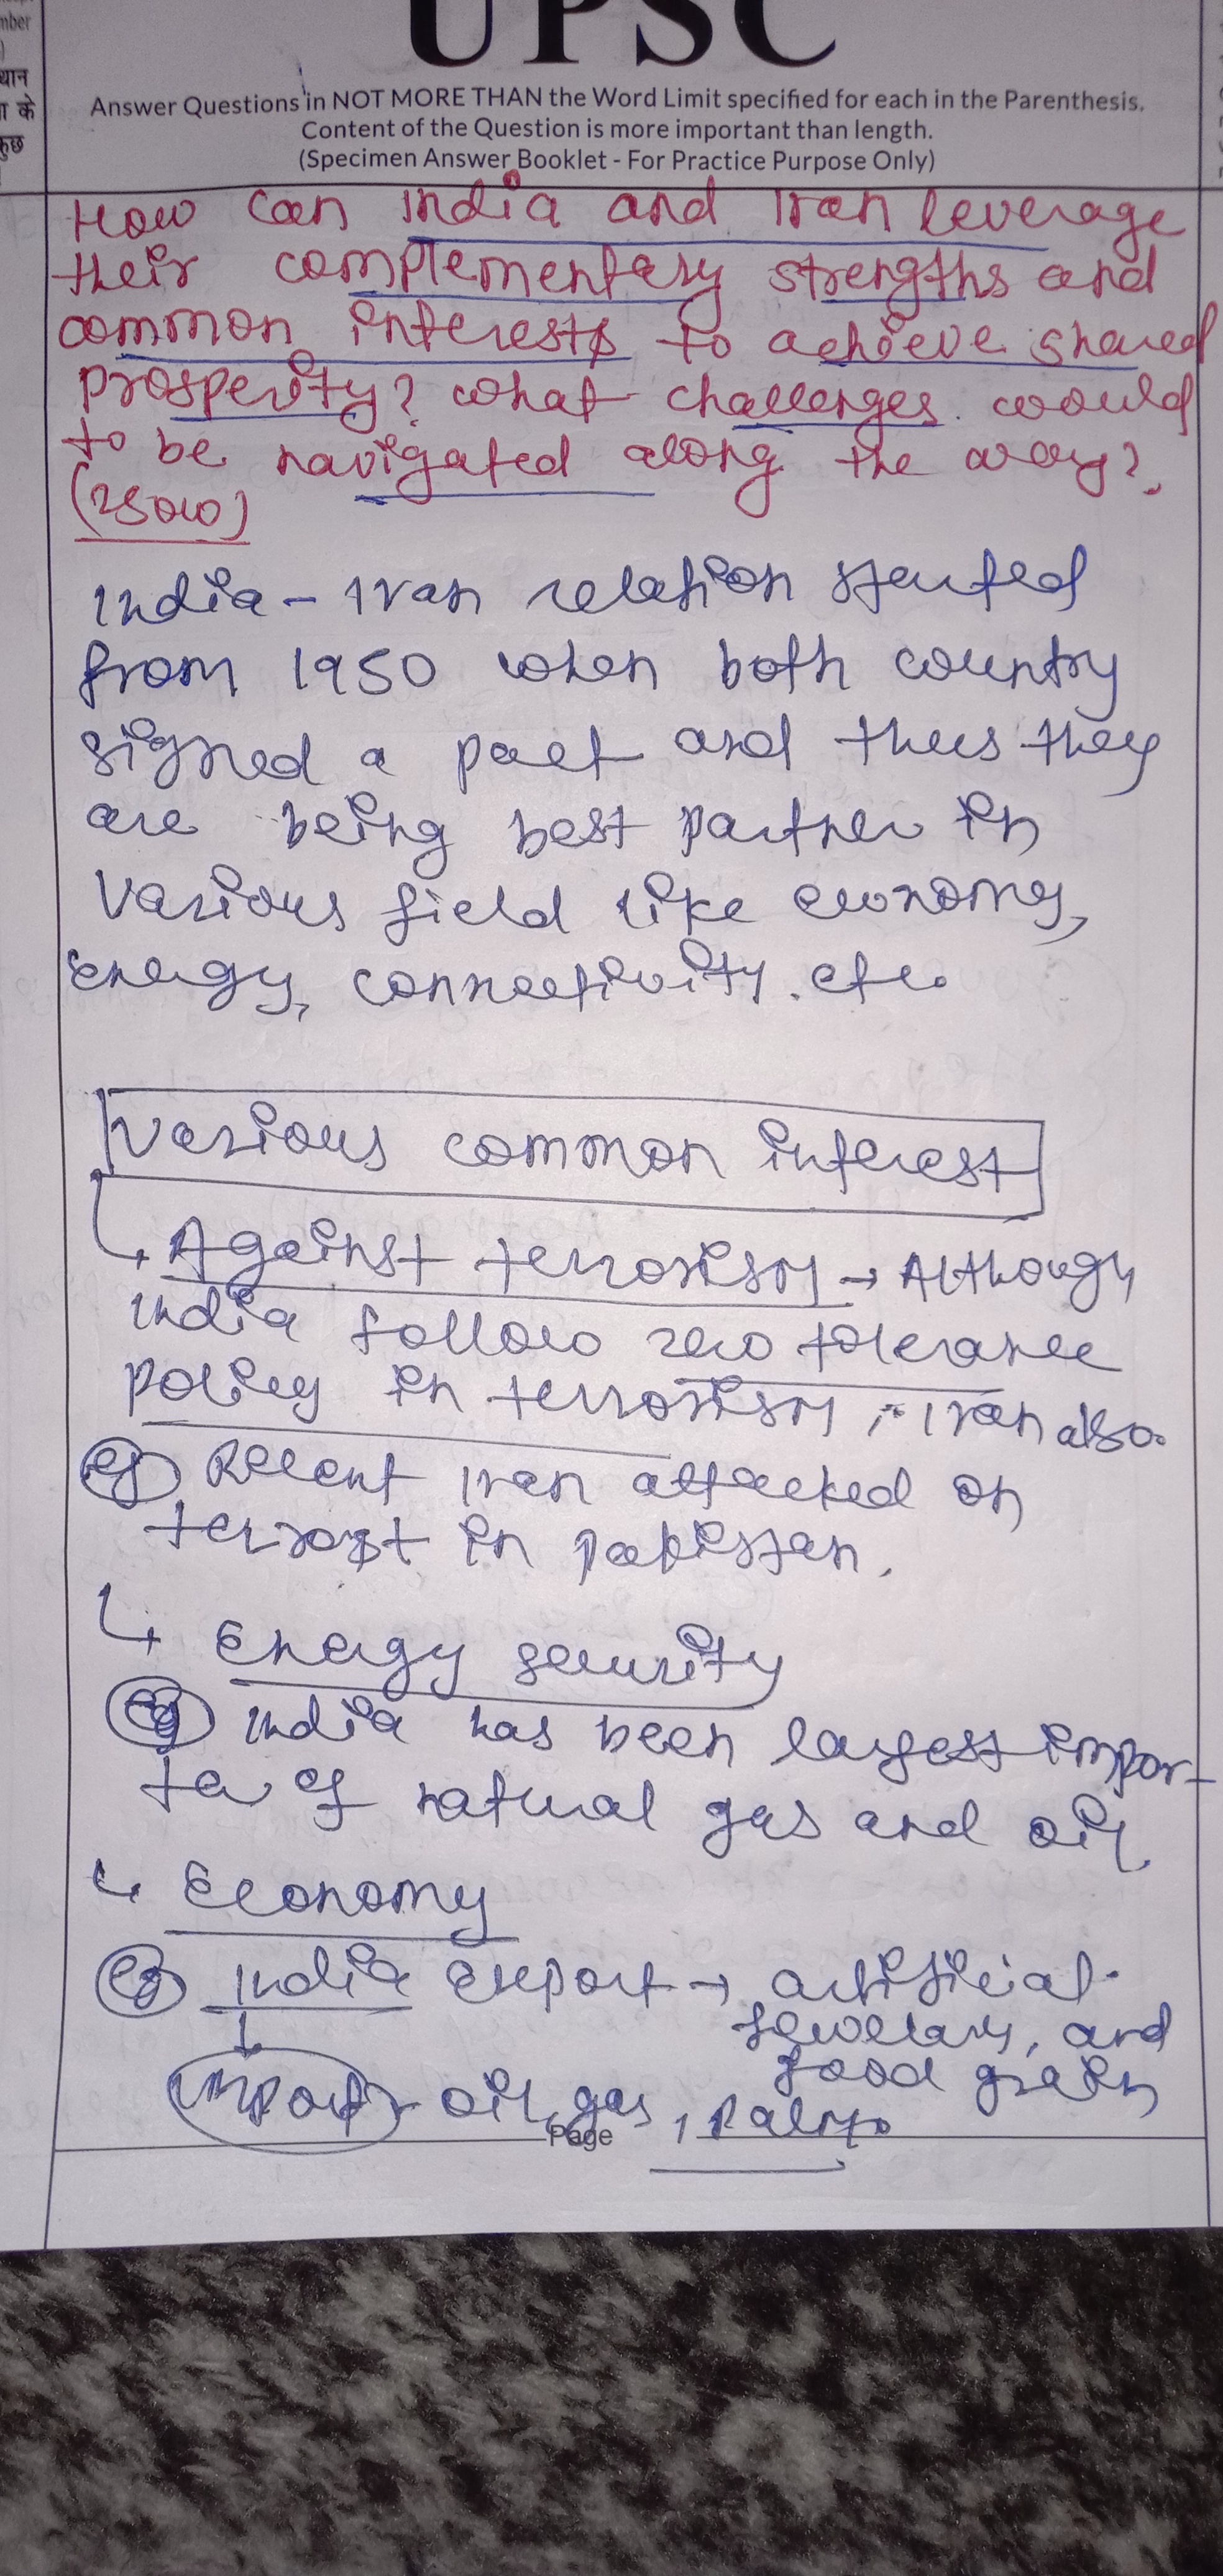 mber
)
थान
ा के
कुछ
UPSC
Answer Questions in NOT MORE THAN the Word Limit specified for each in the Parenthesis.
Content of the Question is more important than length.
(Specimen Answer Booklet - For Practice Purpose Only)
How can India and Iran leverage
their complementary strengths and
common interests to achieve shared
prosperity? what challenges would
to be navigated along the way?
(250w)
India - Iran relation started
from 1950 when both country
signed a pact and thus they
are being best partner in
various field like economy,
energy, connectivity. etc.
Various common interest
↳ Against terrorism → Although
India follow zero tolerance
policy in terrorism, Iran also.
eg Recent Iran attacked on
terrost in pakistan.
↳ Energy security
eg India has been largest impor-
ter of natural gas and oil.
↳ Economy
eg India export → artificial
jewelary, and
food grain
import - oil, gas, palm
Page